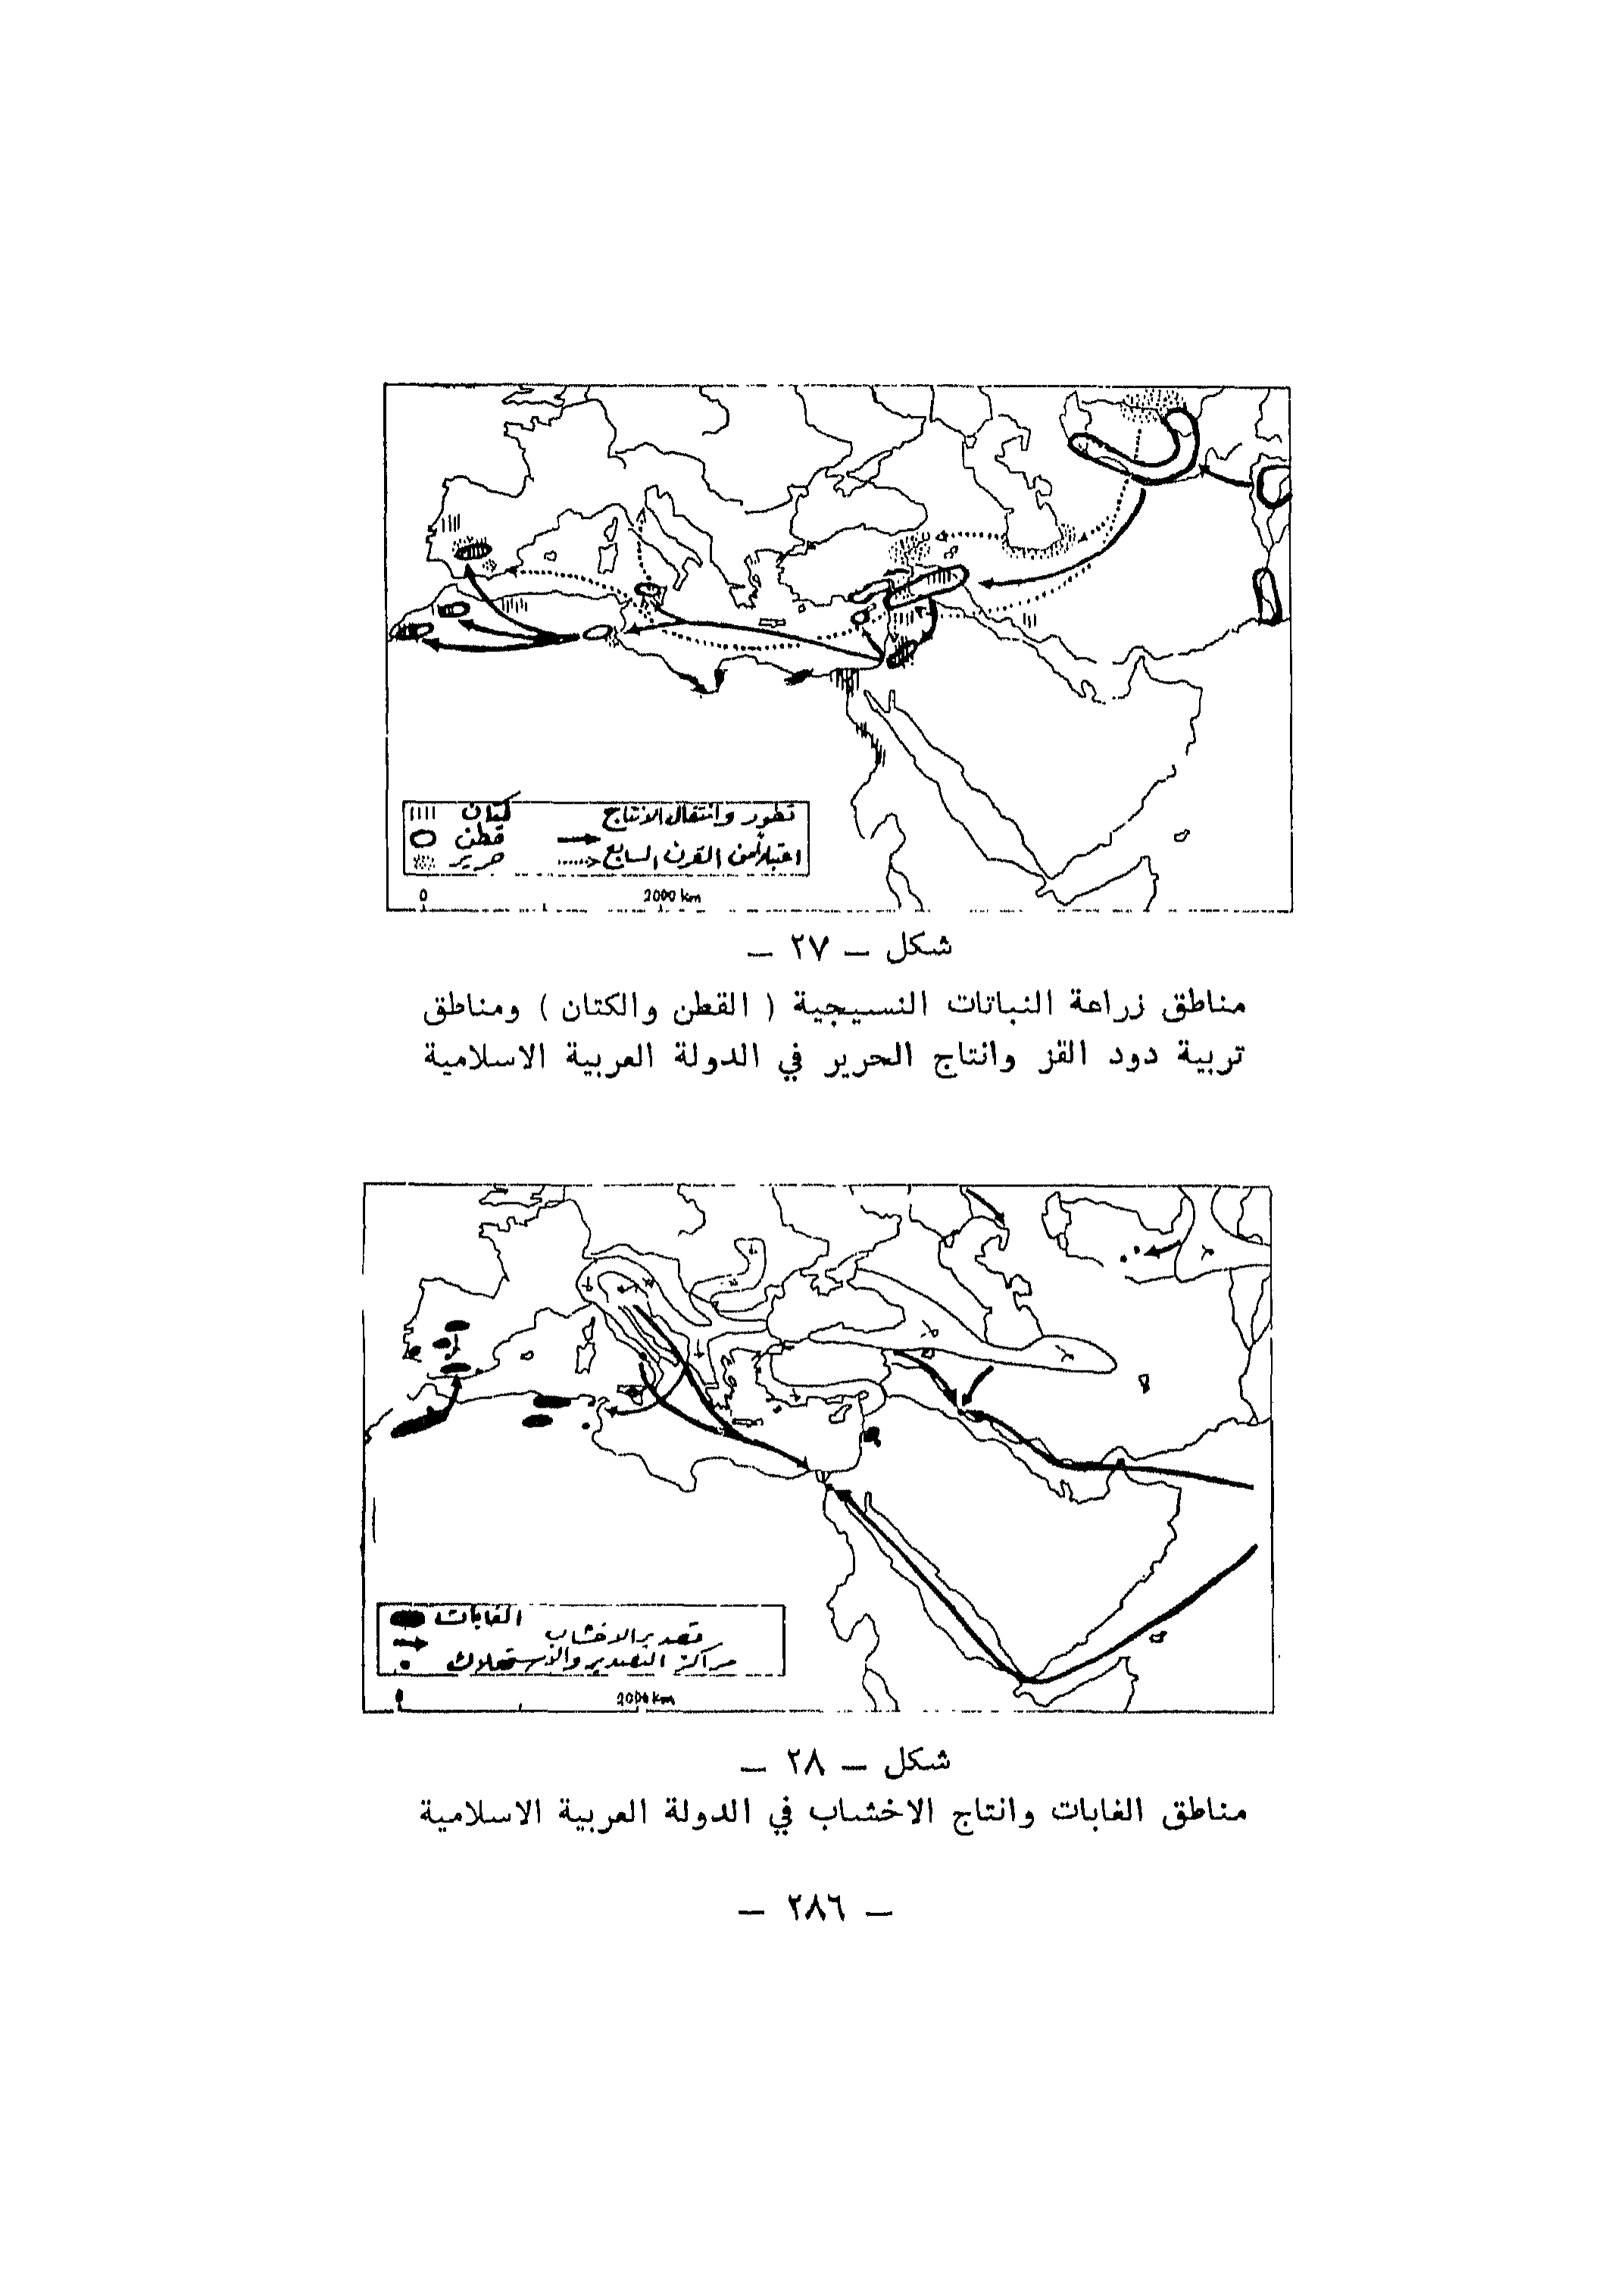 كتان تطور وانتقال الانتاج
قطن
حرير اعتباراً من القرن السابع
0 2000 km
شكل – ٢٧ –
مناطق زراعة النباتات النسيجية ( القطن والكتان ) ومناطق
تربية دود القز وانتاج الحرير في الدولة العربية الاسلامية
الغابات
تصدير الاخشاب
مراكز التصدير والاستهلاك
0 2000 km
شكل – ٢٨ –
مناطق الغابات وانتاج الاخشاب في الدولة العربية الاسلامية
– ٢٨٦ –